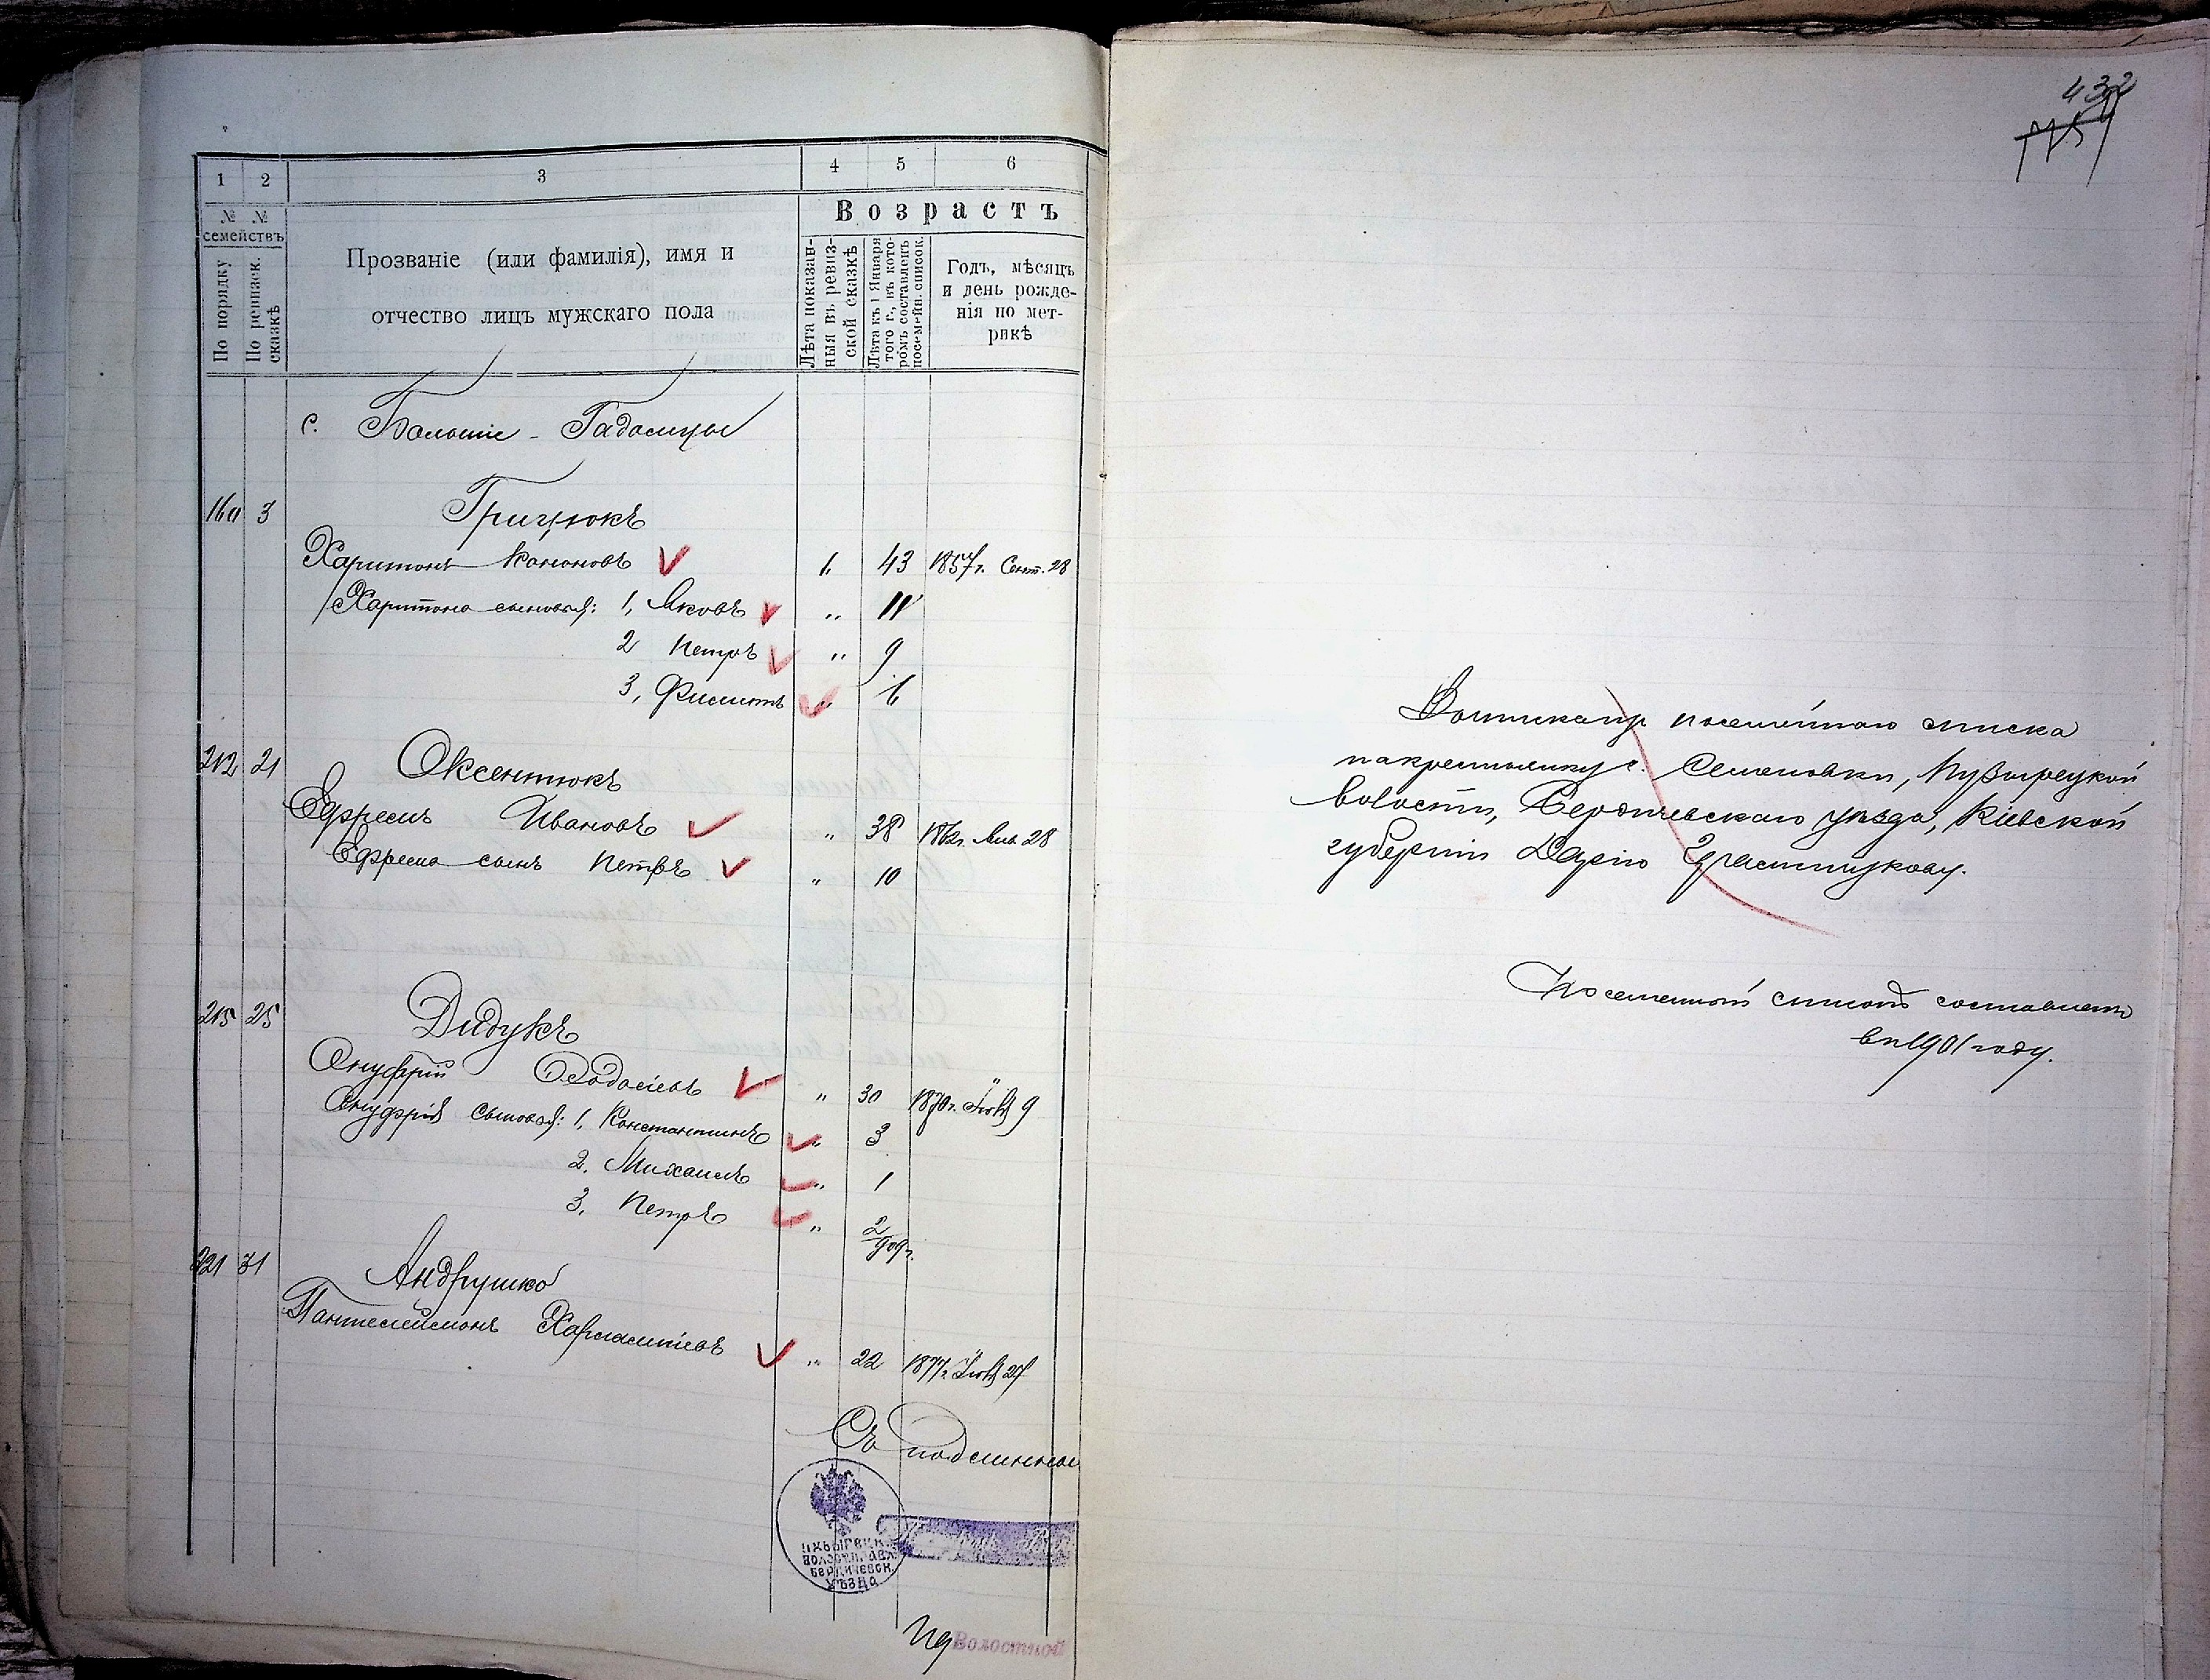 1 2 3 4 5 6
№ № семействъ
По порядку
По ревизск. сказкѣ
Прозваніе (или фамилія), имя и
отчество лицъ мужскаго пола
Возрастъ
Лѣта показан-
ныя въ ревиз-
ской сказкѣ
Лѣта къ 1 Января
того г., въ кото-
ромъ составленъ
посемейн. список.
Годъ, мѣсяцъ
и день рожде-
нія по мет-
рикѣ
с. Большіе - Гадомцы
160 3 Грицюкъ
Харитонъ Кононовъ 1, 43 1857 г. Сент. 28
Харитона сыновья: 1, Яковъ „ 11
2 Петръ „ 9
3, Филиппъ „ 6
212 21 Оксентюкъ
Ефремъ Ивановъ „ 38 1862 г. Янв 28
Ефрема сынъ Петръ „ 10
215 25 Дидукъ
Онуфрій Феодосіевъ „ 30 1870 г. 9
Онуфрія сыновья: 1, Константинъ „ 3
2. Михаилъ „ 1
3, Петръ „ 2/ год.
221 31 Андрушко
Пантелеймонъ Харлампіевъ „ 22 1877 г.
Съ подлинным
волостн. правл.
Бердичевск.
уѣзда
Волостной
432
посемейнаго списка
с. Семеновки, Пузырецкой
волости, Бердичевскаго уѣзда, Кіевской
губерніи
Посемейный списокъ составленъ
въ 1901 году.